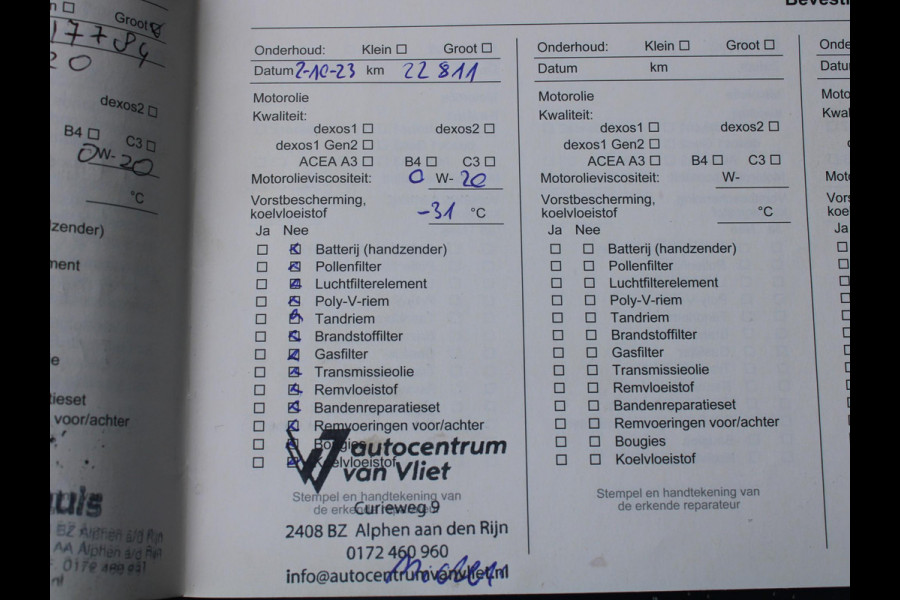 n ☐
Groot ☑
17784
20
dexos2 ☐
B4 ☐ C3 ☐
0W-20
°C
zender)
ment
e
ieset
voor/achter
uis
BZ Alphen a/d Rijn
AA Alphen a/d Rijn
nl
Bevesti
Onderhoud: Klein ☐ Groot ☐
Datum 2-10-23 km 22 811
Motorolie
Kwaliteit:
dexos1 ☐ dexos2 ☐
dexos1 Gen2 ☐
ACEA A3 ☐ B4 ☐ C3 ☐
Motorolieviscositeit: 0 W- 20
Vorstbescherming,
koelvloeistof -31 °C
Ja Nee
☐ ☒ Batterij (handzender)
☐ ☒ Pollenfilter
☐ ☒ Luchtfilterelement
☐ ☒ Poly-V-riem
☐ ☒ Tandriem
☐ ☒ Brandstoffilter
☐ ☒ Gasfilter
☐ ☒ Transmissieolie
☐ ☒ Remvloeistof
☐ ☒ Bandenreparatieset
☐ ☒ Remvoeringen voor/achter
☐ ☒ Bougies
☐ ☒ Koelvloeistof
autocentrum
van Vliet
Stempel en handtekening van
de erkende reparateur
Curieweg 9
2408 BZ Alphen aan den Rijn
0172 460 960
info@autocentrumvanvliet.nl
Onderhoud: Klein ☐ Groot ☐
Datum km
Motorolie
Kwaliteit:
dexos1 ☐ dexos2 ☐
dexos1 Gen2 ☐
ACEA A3 ☐ B4 ☐ C3 ☐
Motorolieviscositeit: W-
Vorstbescherming,
koelvloeistof °C
Ja Nee
☐ ☐ Batterij (handzender)
☐ ☐ Pollenfilter
☐ ☐ Luchtfilterelement
☐ ☐ Poly-V-riem
☐ ☐ Tandriem
☐ ☐ Brandstoffilter
☐ ☐ Gasfilter
☐ ☐ Transmissieolie
☐ ☐ Remvloeistof
☐ ☐ Bandenreparatieset
☐ ☐ Remvoeringen voor/achter
☐ ☐ Bougies
☐ ☐ Koelvloeistof
Stempel en handtekening van
de erkende reparateur
Onde
Datu
Moto
Kwal
Mot
Vors
koe
Ja